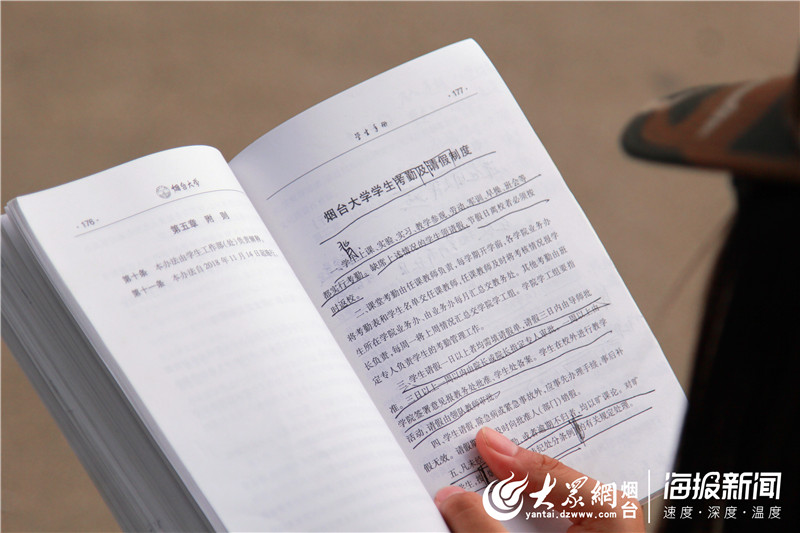 ·176·
烟台大学
第五章 附 则
第十条 本办法由学生工作部(处)负责解释。
第十一条 本办法自2018年11月14日起施行。
学生手册
·177·
烟台大学学生考勤及请假制度
一、学生上课、实验、实习、教学参观、劳动、军训、早操、班会等
都实行考勤。缺席上述情况的学生须请假。节假日离校者必须按
时返校。
二、课堂考勤由任课教师负责,每学期开学前,各学院业务办
将考勤表和学生名单交任课教师,任课教师及时将考核情况报学
生所在学院业务办,由业务办每月汇总交教务处。其他考勤由班
长负责,每周一将上周情况汇总交学院学工组。学院学工组要指
定专人负责学生的考勤管理工作。
三、学生请假一日以上者均需填请假单,请假三日内由导师批
准,三日以上一周以内由院长或院长指定专人审批,一周以上由
学院签署意见报教务处批准、学生处备案。学生在校外进行教学
活动,请假由领队教师审批。
四、学生请假,除急病或紧急事故外,应事先办理手续,事后补
假无效。请假期
及时向批准人(部门)销假。
五、凡未
或者逾期不归者,均以旷课论,对旷
违纪处分条例
的有关规定处理。
大眾網 烟台
yantai.dzwww.com
海报新闻
速度·深度·温度